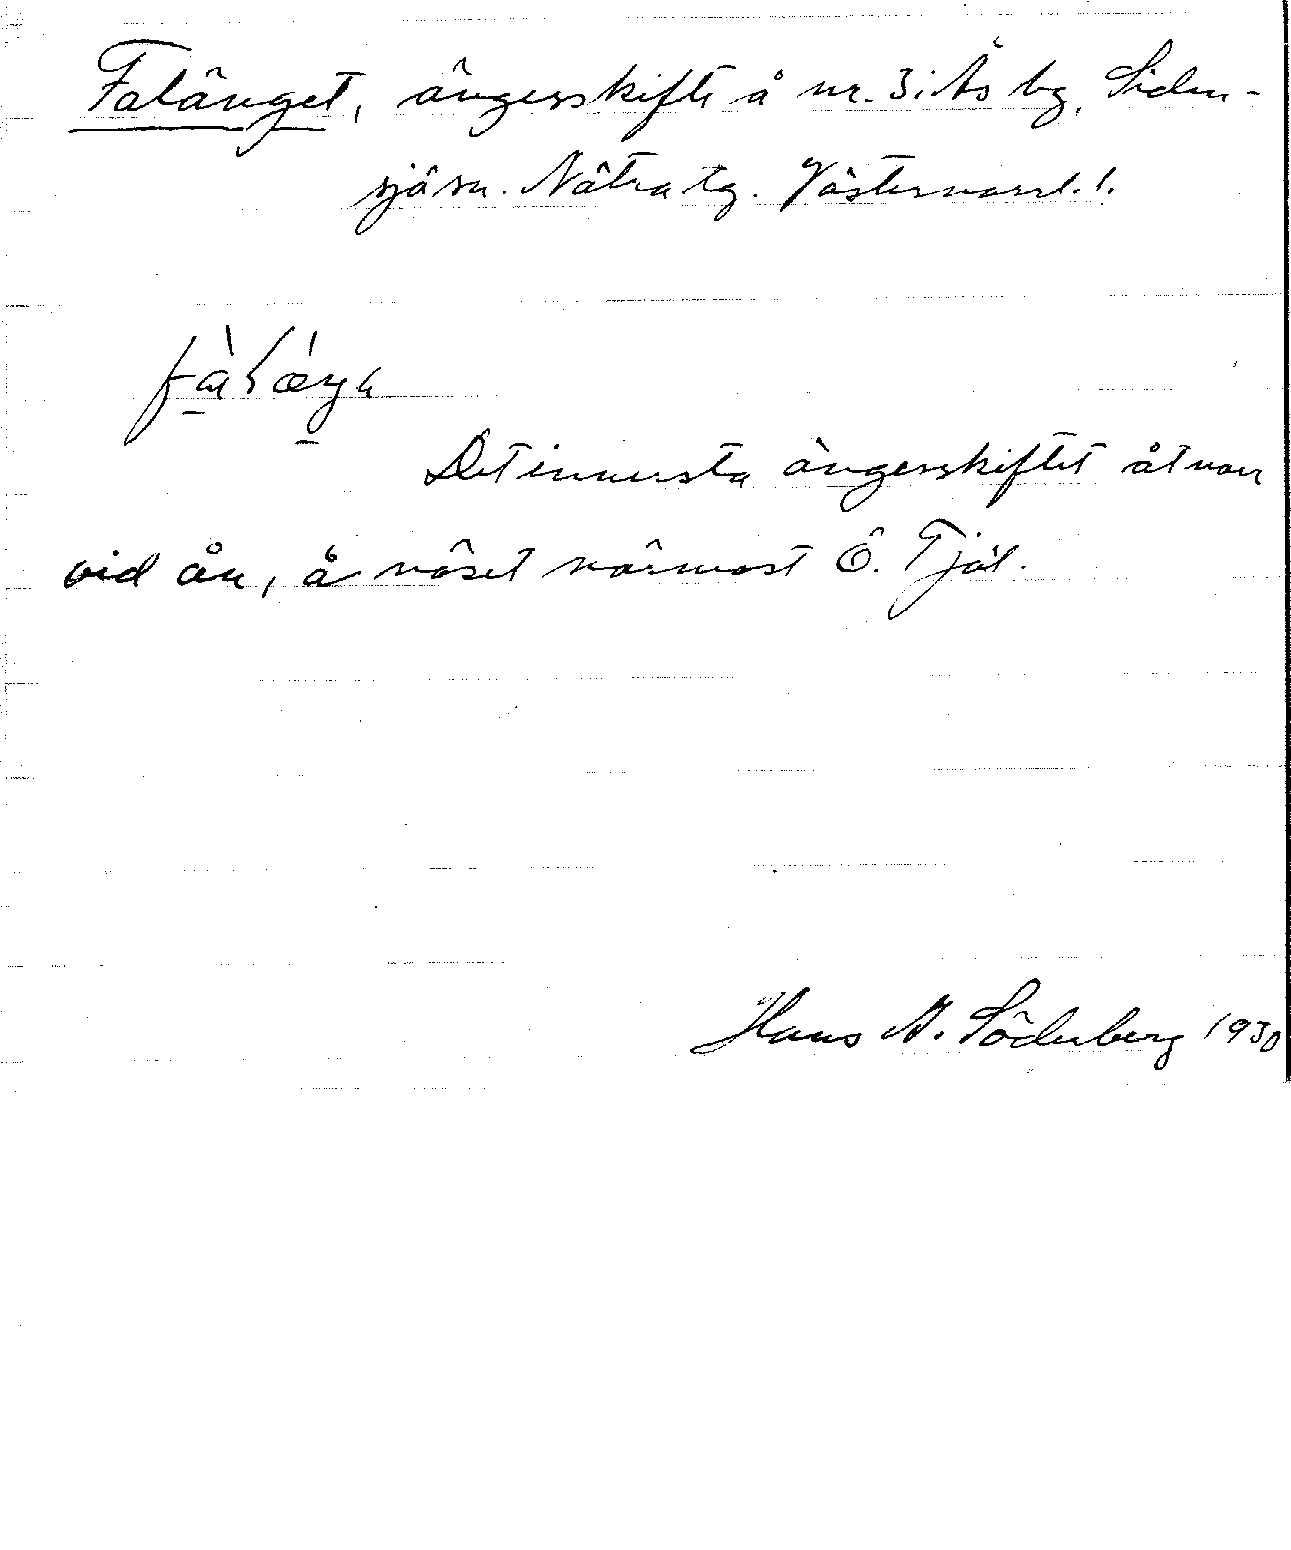 Falänget, ängesskifte å nr. 3 i Ås by, Siden-
sjö sn. Nätra tg. Västernorrl. l.
Det innersta ängesskiftet åt norr
vid ån, å näset närmast Ö. Tjäl.
Hans A. Söderberg 1930